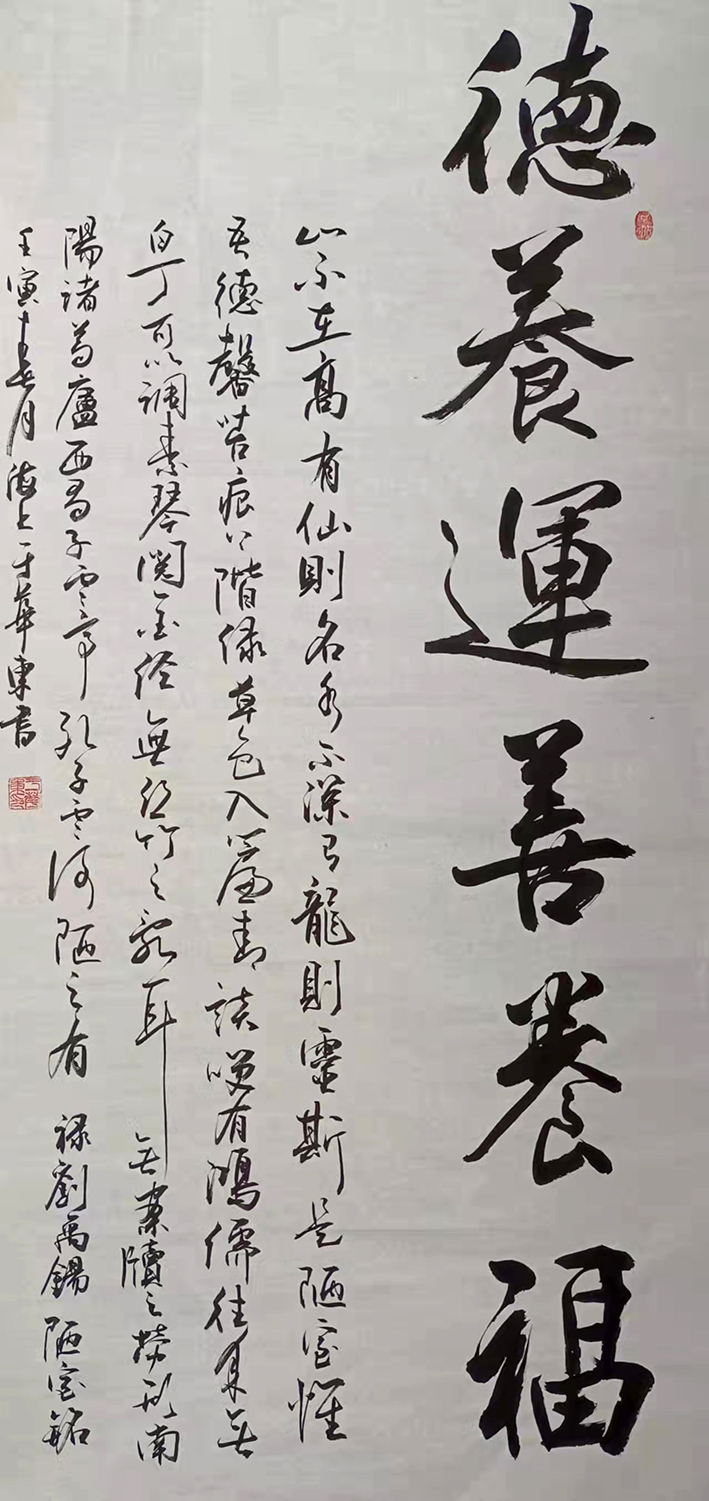 德養運善養福
山不在高有仙則名水不深有龍則靈斯是陋室惟
吾德馨苔痕上階緑草色入簾青談笑有鴻儒往来無
白丁可以调素琴閱金经無丝竹之亂耳無案牘之勞形南
陽諸葛廬西蜀子雲亭孔子云何陋之有 禄劉禹錫陋室銘
壬寅十月海上于華東書